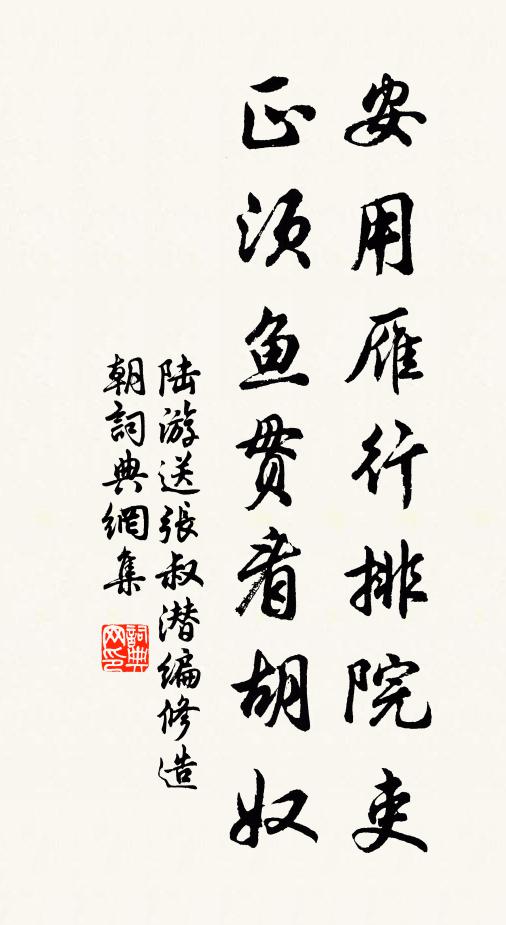 安用雁行排院吏
正须鱼贯看胡奴
陆游送張叔潜编修造
朝詞典網集
詞典网印